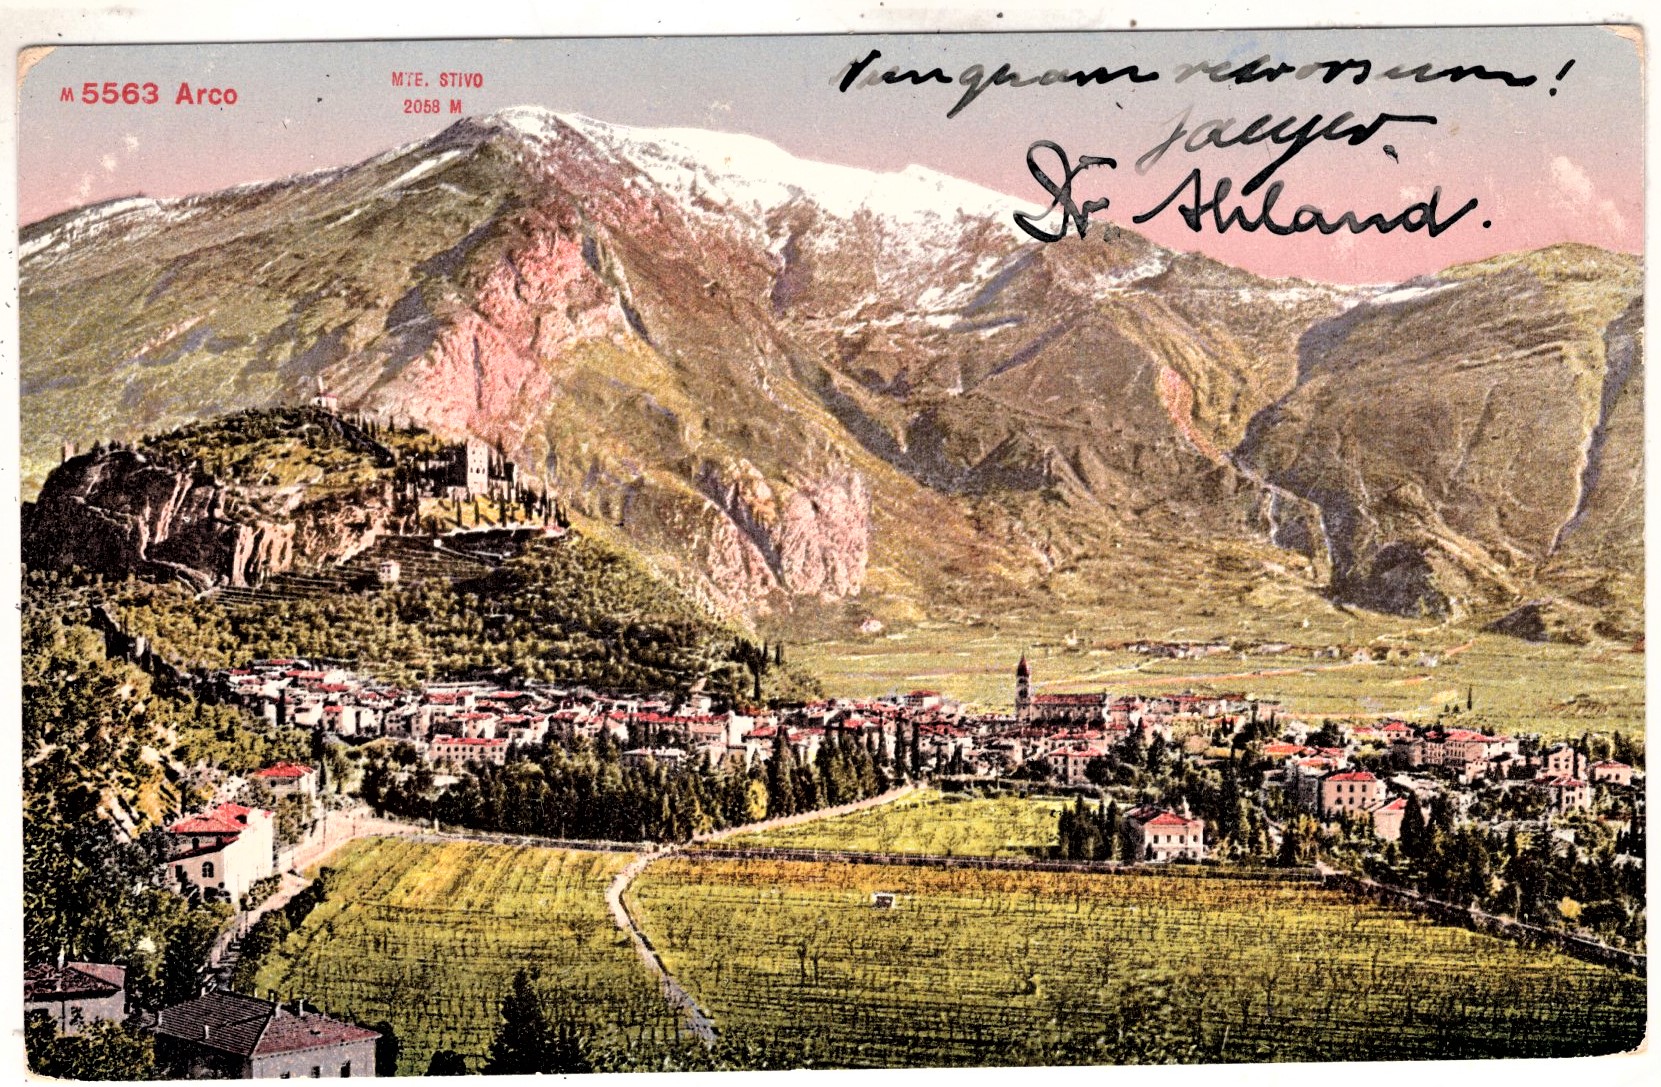 M 5563 Arco
MTE. STIVO
2058 M
Nunquam retrorsum!
Jaeger.
Dr. Ahland.